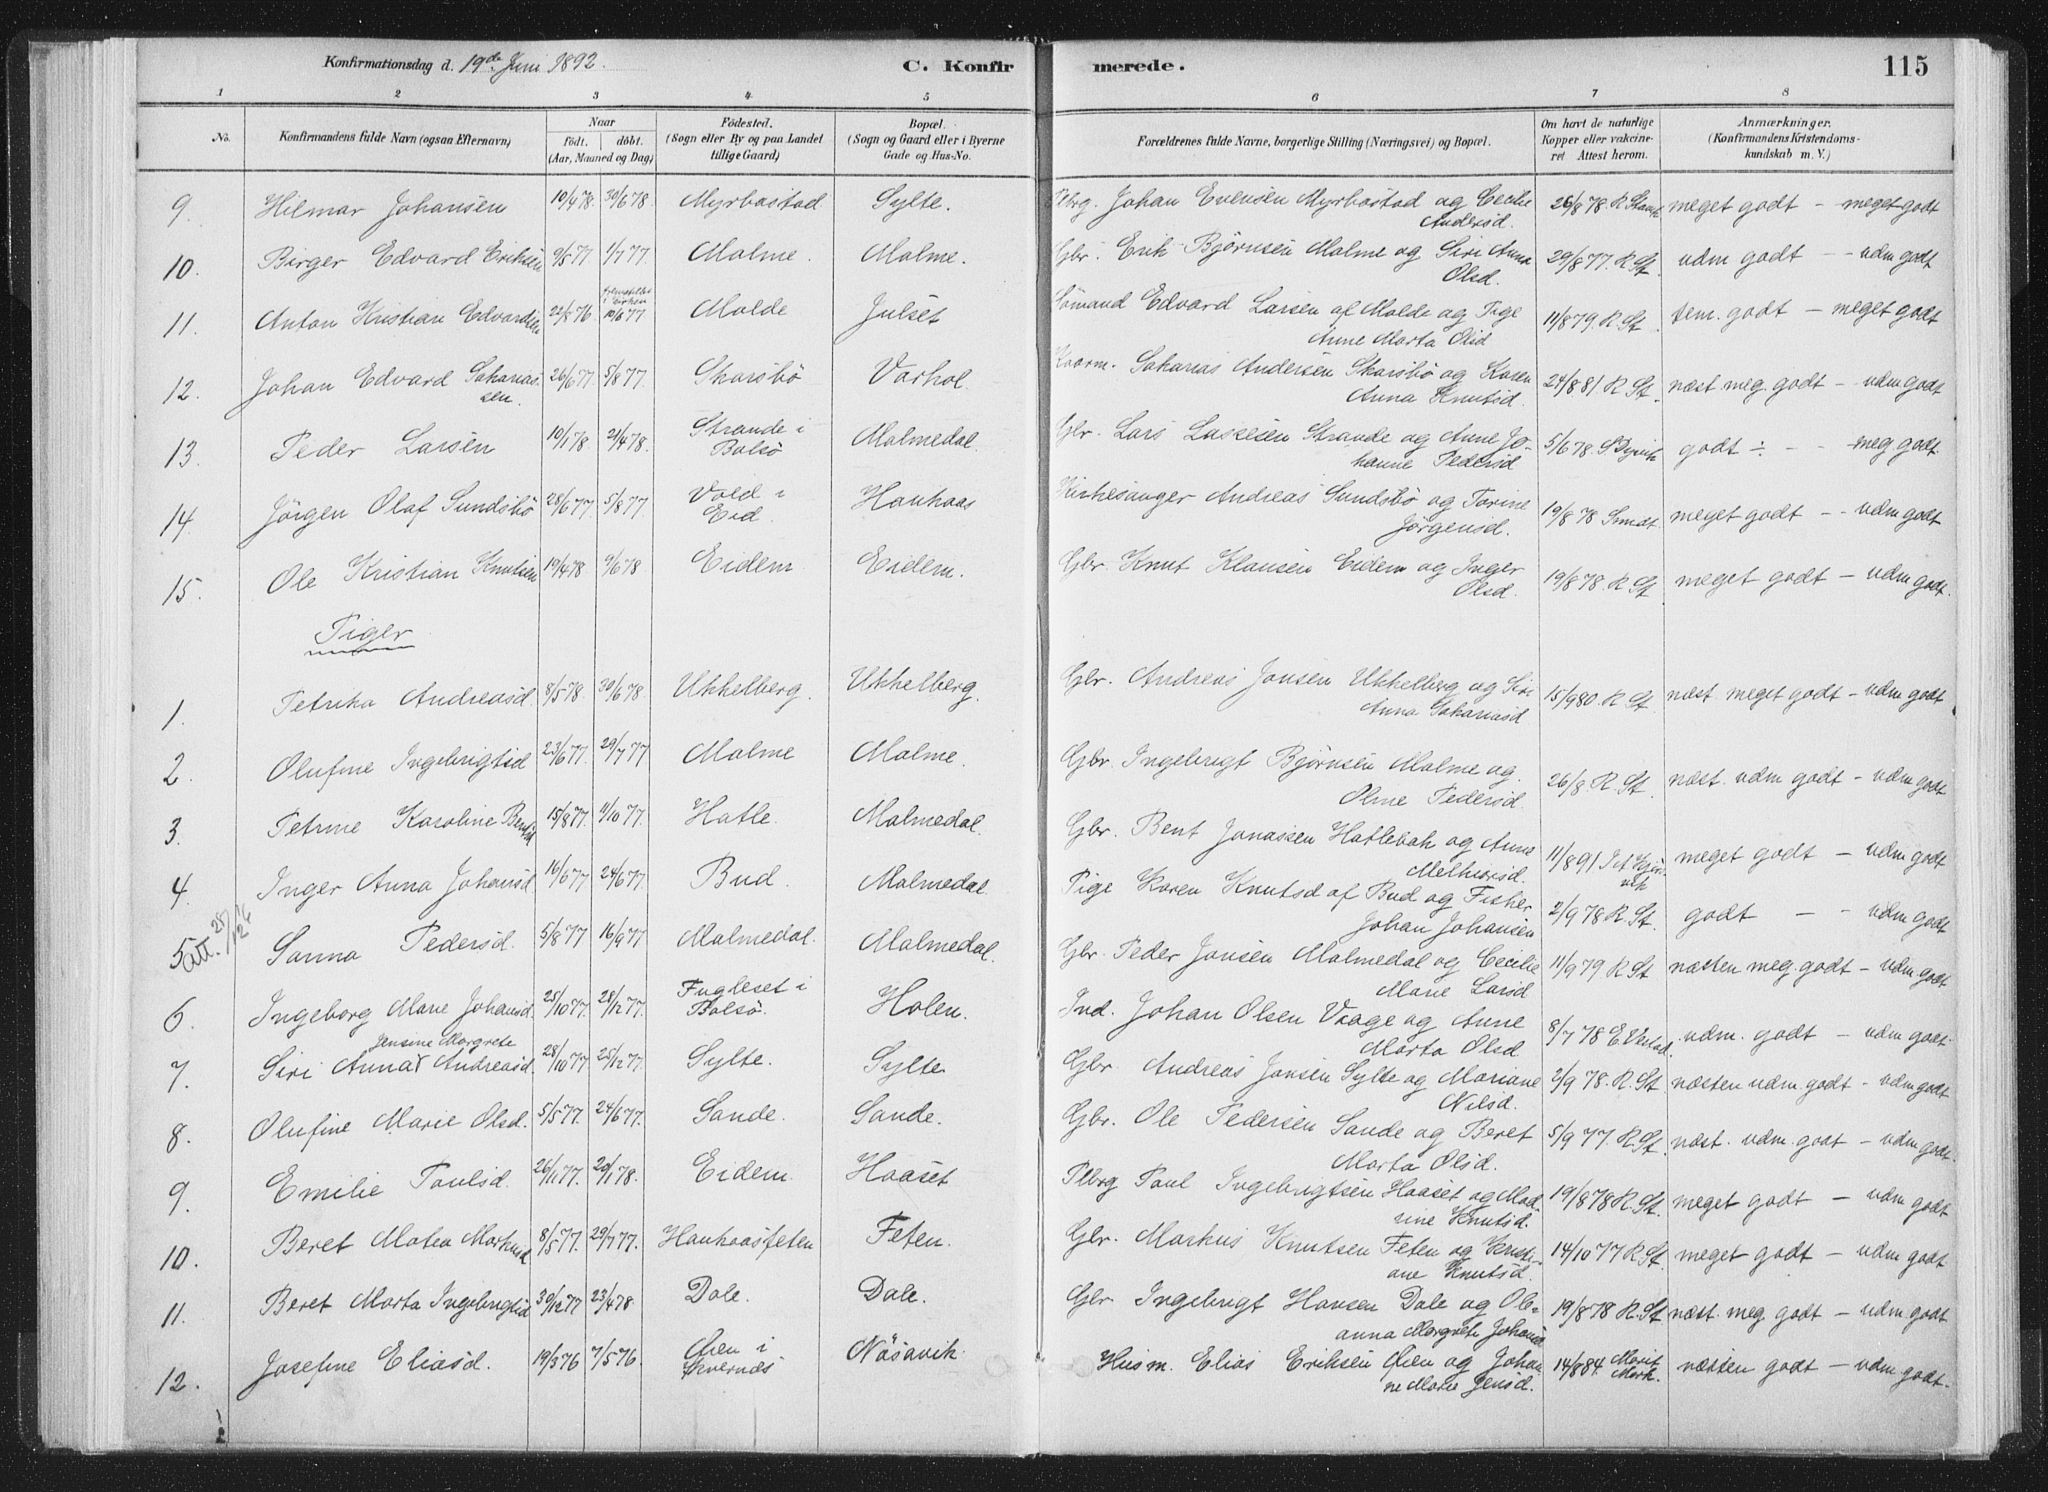 Konfirmationsdag d. 19de Juni 1892.
C. Konfirmerede.
115
1 2 3 4 5 6 7 8
No.
Konfirmandens fulde Navn (ogsaa Efternavn)
Naar
födt. döbt.
(Aar, Maaned og Dag)
Födested.
(Sogn eller By og paa Landet tillige Gaard)
Bopæl.
(Sogn og Gaard eller i Byerne Gade og Hus-No.
Forældrenes fulde Navne, borgerlige Stilling (Næringsvei) og Bopæl.
Om havt de naturlige Kopper eller vakcineret Attest herom.
Anmærkninger.
(Konfirmandens Kristendomskundskab m. V.)
9. Hilmar Johansen 10/4 78. 30/6 78. Myrbostad Sylte. Plbrg. Johan Evensen Myrbostad og Cecilie Andersd. 26/8 78. R. Stavik meget godt – meget godt
10. Birger Edvard Eriksen 9/5 77 1/7 77. Malme. Malme. Gbr. Erik Bjørnsen Malme og Siri Anna Olsd. 29/8 77. R. St. udm godt – – udm godt
11. Anton Kristian Edvardsen 22/8 76 fremstillet i Kirken 10/6 77 Molde Julset Sömand Edvard Larsen af Molde og Pige Anne Marta Olsd 11/8 79. R. St. tem. godt – meget godt
12. Johan Edvard Sakariassen. 26/6 77. 5/8 77. Skarsbö Varhol. Kaarm. Sakarias Andersen Skarsbö og Karen Anna Knutsd. 24/8 81. R. St. næst meg. godt – – udm godt
13. Peder Larsen 10/1 78. 21/4 78. Strande i Bolsö Malmedal. Gbr. Lars Lassesen Strande og Anne Johanne Pedersd 5/6 78. godt ÷ – – meg godt.
14. Jörgen Olaf Sundsbö 28/6 77. 5/8 77 Vold i Eid. Haukaas Kirkesanger Andreas Sundsbö og Torine Jörgensd. 19/8 78 Smidt. meget godt – – udm godt
15. Ole Kristian Knutsen 19/4 78 9/6 78. Eidem Eidem. Gbr. Knut Klausen Eidem og Inger Olsd. 19/8 78. R. St. meget godt – udm godt.
Piger
1. Petrika Andreasd. 8/5 78. 30/6 78. Ukkelberg. Ukkelberg. Gbr. Andreas Jonsen Ukkelberg og Siri Anna Sakariasd 15/9 80. R. St. næst meget godt – udm godt
2. Olufine Ingebrigtsd 23/6 77. 29/7 77 Malme Malme. Gbr. Ingebrigt Bjørnsen Malme og Olme Pedersd. 26/8 R. St. næst. udm godt – udm godt
3. Petrine Karoline Bentsd 15/8 77. 11/10 77. Hatle. Malmedal. Gbr. Bent Jonassen Hatlebak og Anne Melkiorsd. 11/8 91 meget godt – udm godt
4. Inger Anna Johansd. 16/6 77 24/6 77. Bud. Malmedal. Pige Karen Knutsd af Bud og Fisker Johan Johansen 2/9 78 R. St. godt – – udm godt
5 att. 28/12 26 Sanna Pedersd. 5/8 77 16/9 77 Malmedal. Malmedal. Gbr. Peder Jonsen Malmedal og Cecilie Marie Larsd 11/9 79 R. St næsten meg. godt – udm godt
6. Ingeborg Marie Johansd. 25/10 77. 28/12 77. Fugleset i Bolsö. Holen. Ind. Johan Olsen Vaage og Anne Marta Olsd 8/7 78 udm. godt – udm godt.
7. Siri Anna Jensine Margrete Andreasd. 28/10 77. 25/12 77. Sylte. Sylte Gbr. Andreas Jonsen Sylte og Mariane Nilsd. 2/9 78. R. St. næsten udm. godt – udm godt
8. Olufine Marie Olsd. 5/5 77. 24/6 77. Sande. Sande. Gbr. Ole Pedersen Sande og Beret Marta Olsd. 5/9 77. R. St. næst. udm. godt – udm godt.
9. Emilie Paulsd. 26/11 77. 20/1 78. Eidem. Haaset Plbrg Paul Ingebrigtsen Haaset og Madrine Knutsd. 19/8 78 R. St. meget godt – udm godt
10. Beret Matea Markusd 8/5 77. 29/7 77. Haukaasfeten Feten. Gbr. Markus Knutsen Feten og Kristiane Knutsd. 14/10 77 R. St. meget godt – udm godt
11. Beret Marta Ingebrigtsd 30/12 77 23/4 78 Dale. Dale. Gbr Ingebrigt Hansen Dale og Oleanna Margrete Johansd 19/8 78 R. St næst. meg godt – udm godt
12. Josefine Eliasd. 19/3 76 7/5 76. Öien i Kvernæs Näsavik. Husm. Elias Eriksen Öien og Johanne Marie Jensd. 14/8 84. Marit Mork. næsten godt – udm godt.